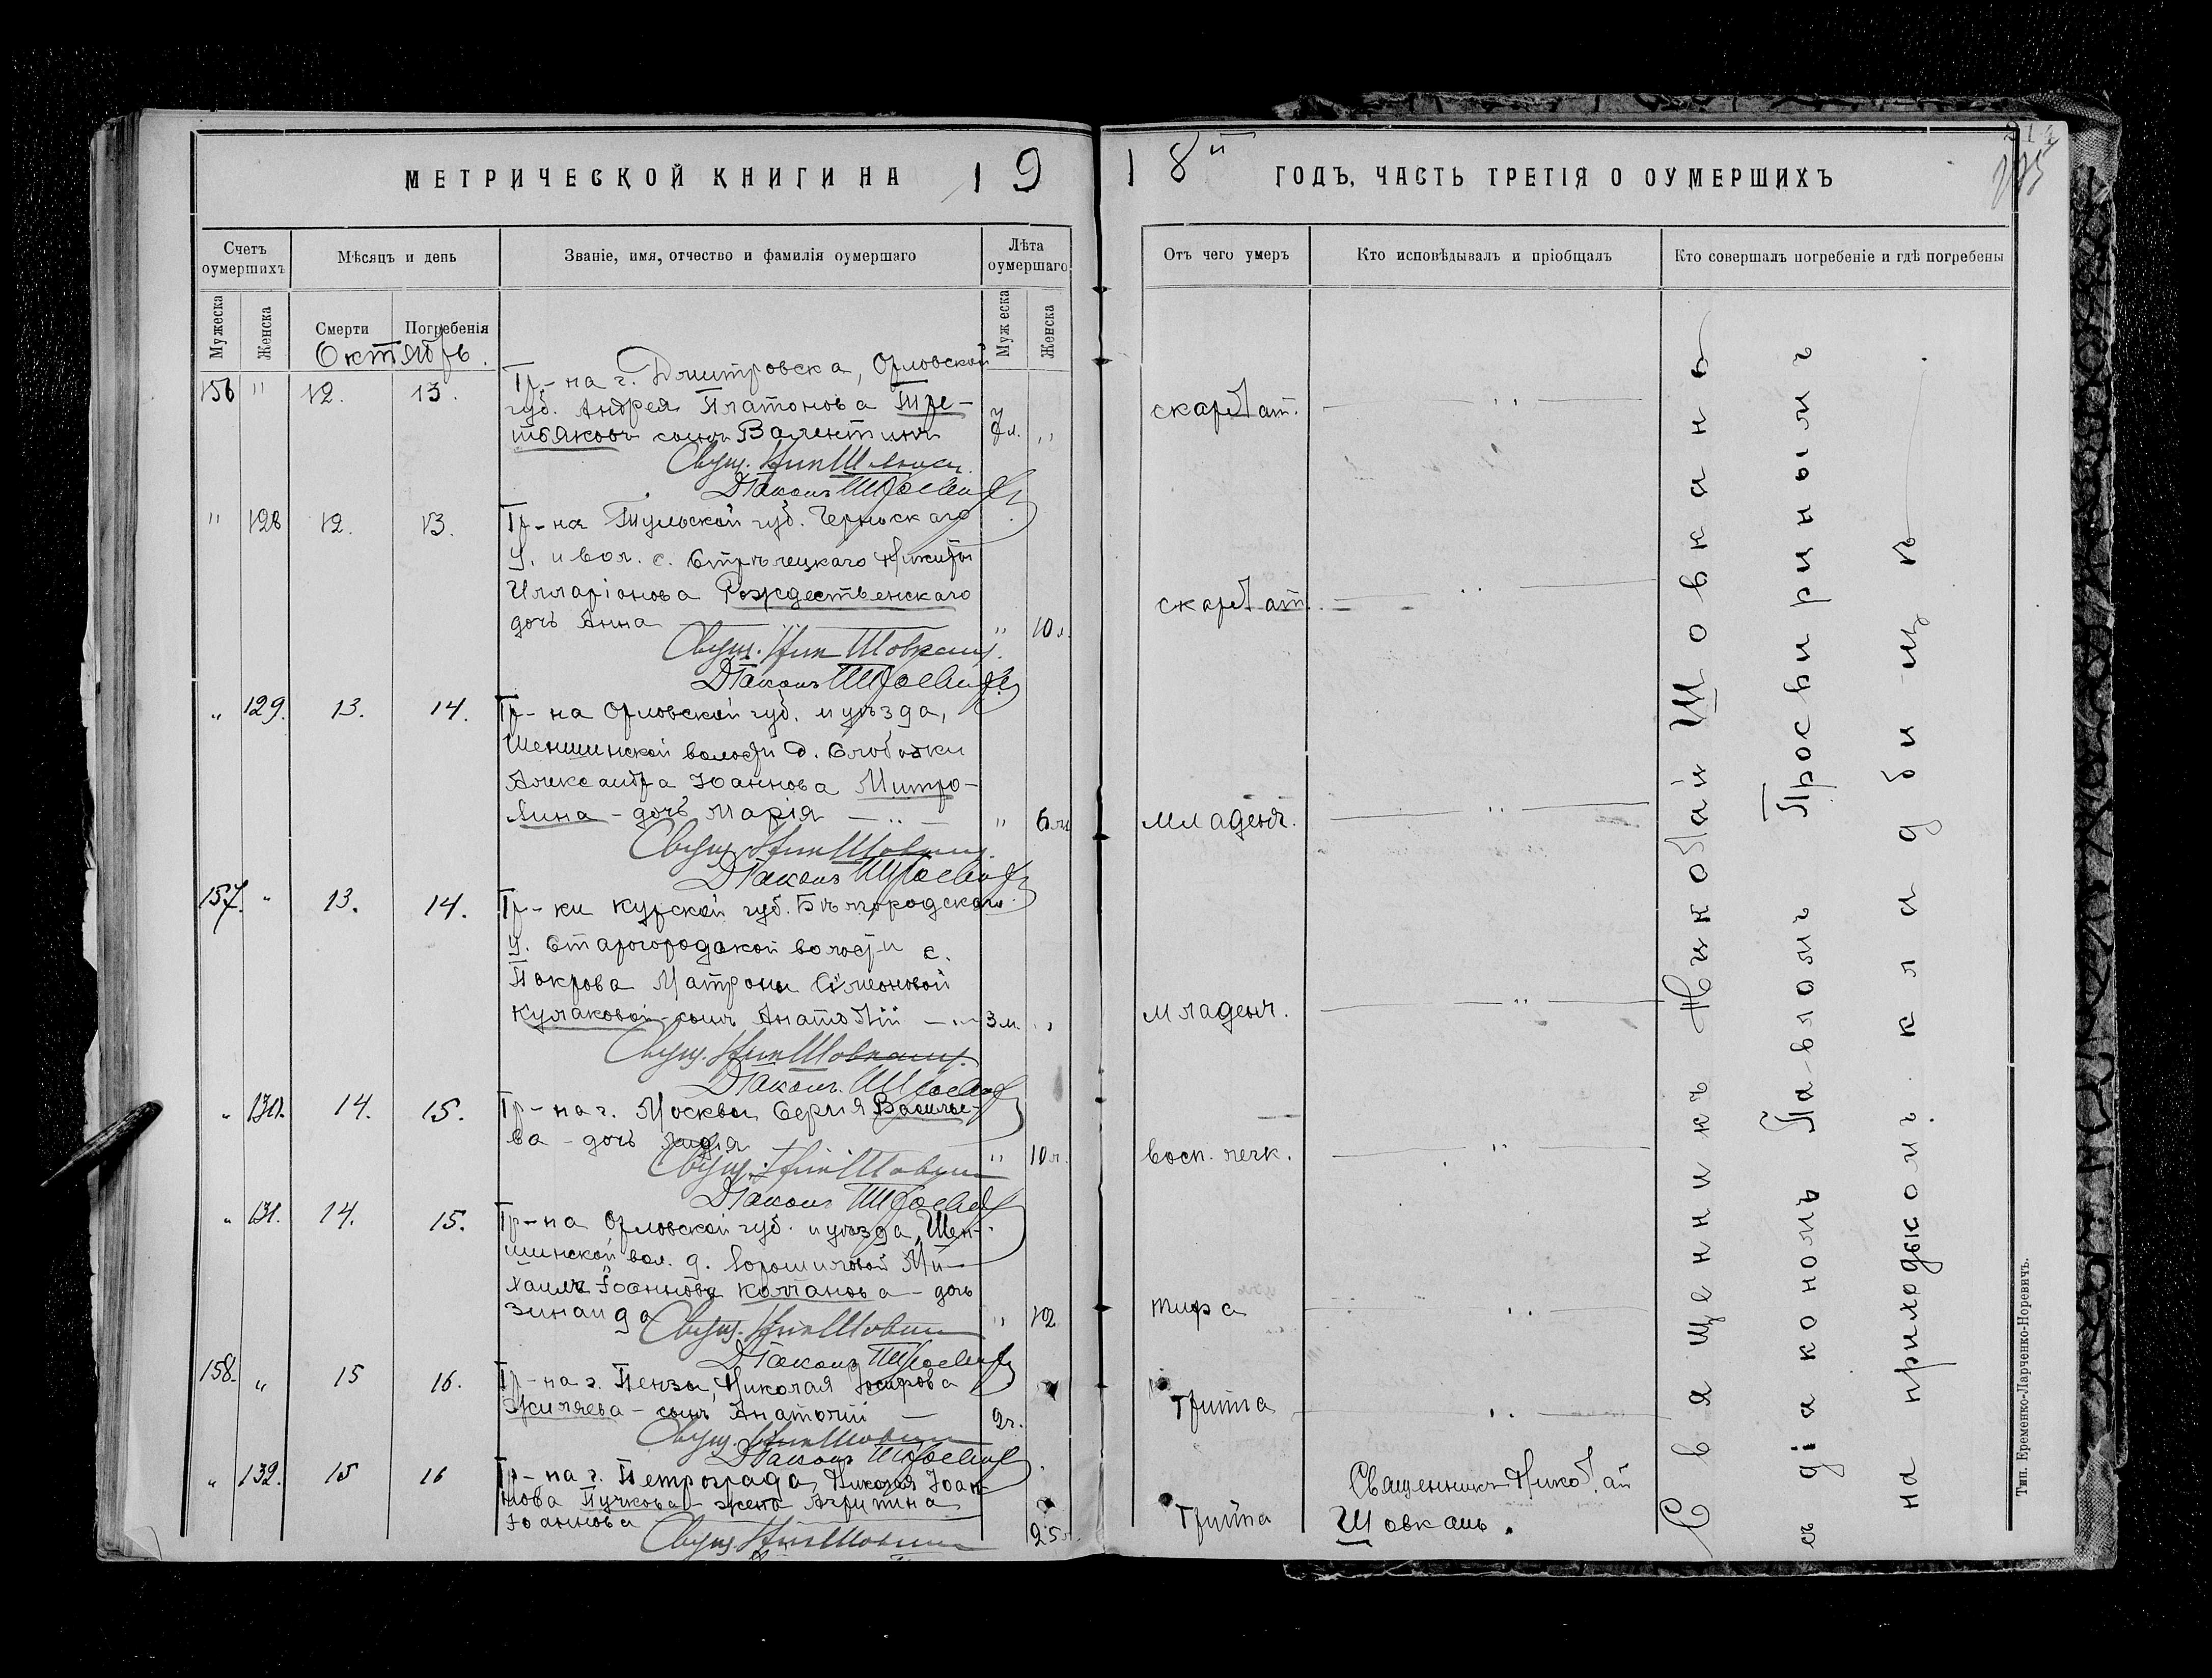 МЕТРИЧЕСКОЙ КНИГИ НА 19
18й ГОДЪ, ЧАСТЬ ТРЕТІЯ О ОУМЕРШИХЪ
Счетъ оумершихъ
Мѣсяцъ и день
Званіе, имя, отчество и фамилія оумершаго
Лѣта оумершаго
Мужеска
Женска
Смерти
Погребенія
Мужеска
Женска
Отъ чего умеръ
Кто исповѣдывалъ и пріобщалъ
Кто совершалъ погребеніе и гдѣ погребены
Октябрь.
156 " 12. 13.
Гр-на г. Дмитровска, Орловской
губ. Андрея Платонова Тре-
тьякова сынъ Валентинъ
скарлат.
Свящ. Ник Шовкань
Діаконъ
" 128 12. 13.
Гр-на Тульской губ. Чернскаго
у. и вол. с. Стрѣлецкаго Никиты
Илларіонова Рождественскаго
дочь Анна " 10 л.
скарлат.
Свящ. Ник Шовкань
Діаконъ
" 129. 13. 14.
Гр-на Орловской губ. и уѣзда,
Шеншинской волости д. Слободки
Александра Іоаннова Митро-
хина - дочь Марія "
младенч.
Свящ. Ник Шовкань
Діаконъ
157. " 13. 14.
Гр-ки Курской губ. Бѣлгородскаго
у. Старогородской волости с.
Покрова Матроны Симеоновой
Кулаковой - сынъ Анатолій 3 м. "
младенч.
Свящ. Ник Шовкань
Діаконъ
" 130. 14. 15.
Гр-на г. Москвы Сергія Василье-
ва - дочь Лидія
" 10 л.
восп. легк.
Свящ. Ник Шовкань
Діаконъ
" 131. 14. 15.
Гр-на Орловской губ. и уѣзда, Шен-
шинской вол. д.
Михаила Іоаннова - дочь
Зинаида "
тифа
Свящ. Ник Шовкань
Діаконъ
158. " 15 16.
Гр-на г. Пензы, Николая Іосифова
Жиляева - сынъ Анатолій 2 г.
Гриппа
Свящ. Ник Шовкань
Діаконъ
" 132. 15 16
Гр-на г. Петрограда, Николая Іоан-
нова Пучкова - жена Агрипина
Іоаннова 25 л.
Гриппа
Священникъ Николай
Шовкань.
Свящ. Ник Шовкань
Священникъ Николай Шовкань
съ діакономъ Павломъ Просвиринымъ
на приходскомъ кладбищѣ.
Тип. Еременко-Ларченко-Норевичъ.